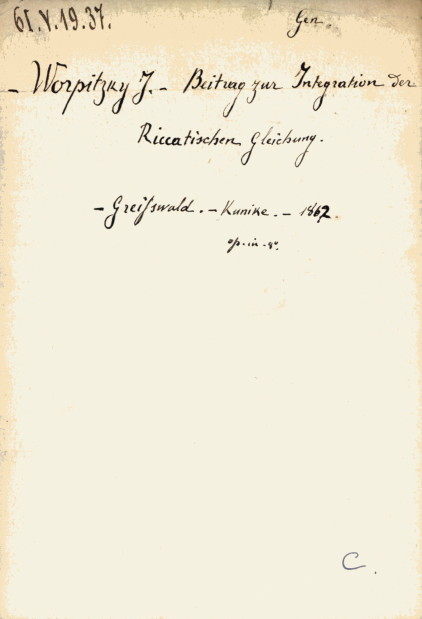 61.V.19.37.
Gen.
- Worpitzky J. - Beitrag zur Integration der
Riccatischen Gleichung.
- Greifswald. - Kunike. - 1862.
op. in-8°.
C.